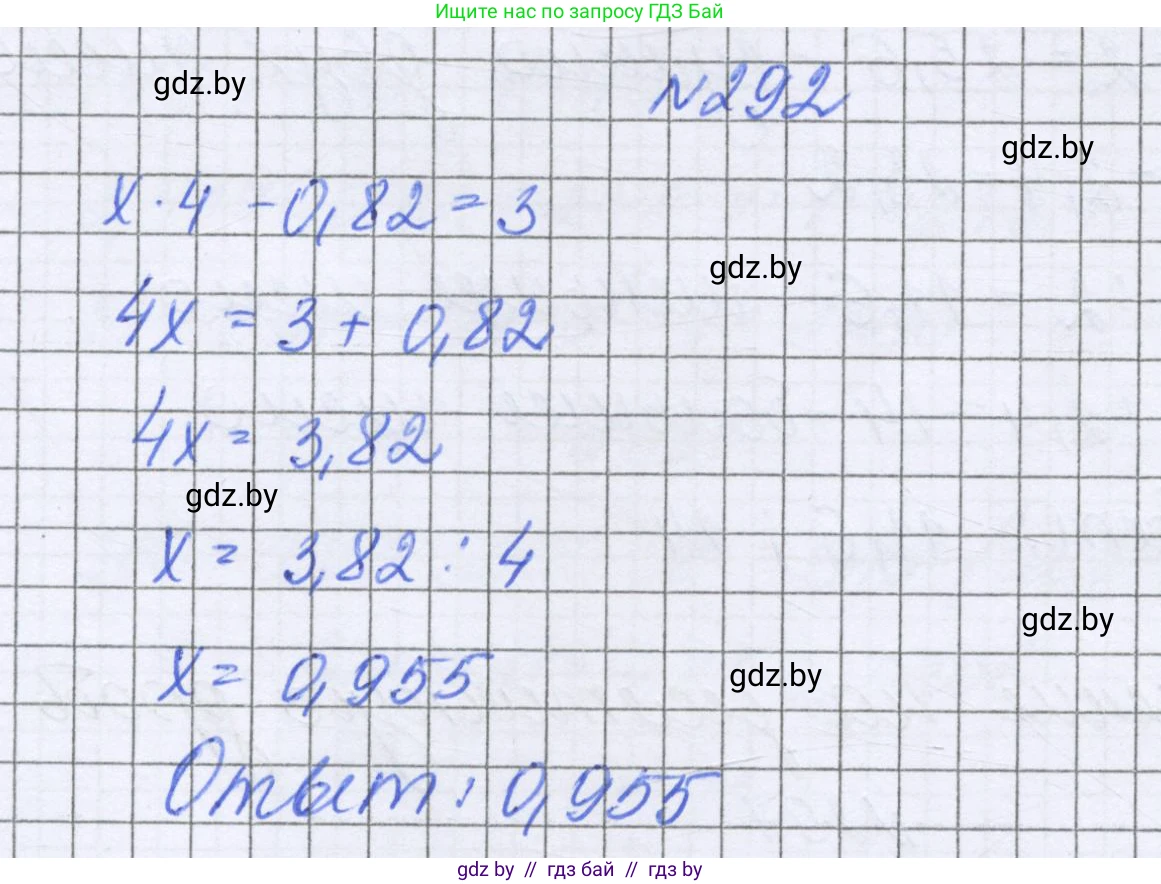 Ищите нас по запросу ГДЗ Бай
gdz.by
№292
gdz.by
x · 4 - 0,82 = 3
gdz.by
4x = 3 + 0,82
4x = 3,82
gdz.by
x = 3,82 : 4
gdz.by
x = 0,955
gdz.by
Ответ: 0,955
gdz by // гдз бай // гдз by